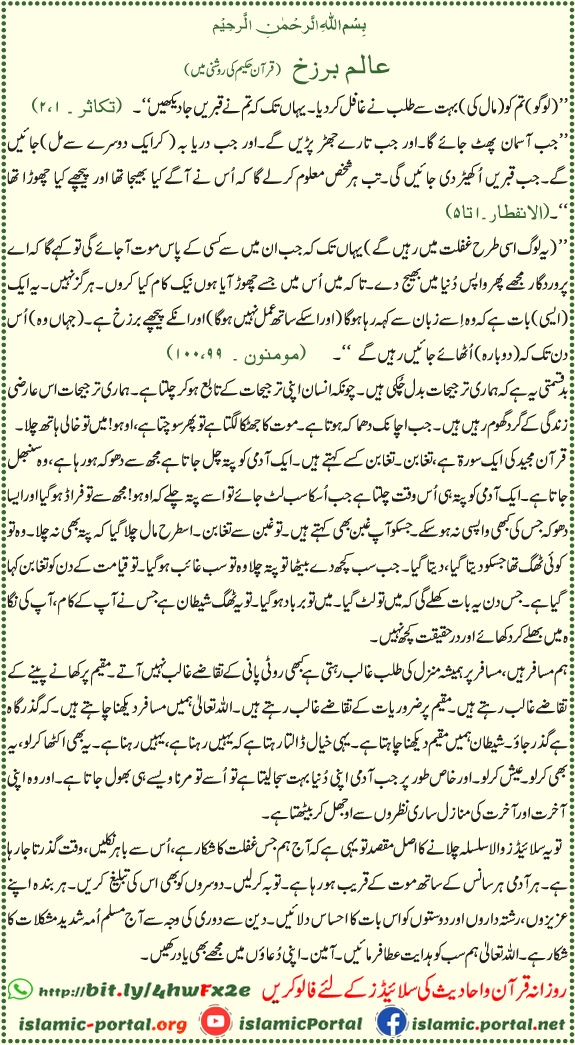 بِسْمِ اللهِ الرَّحْمٰنِ الرَّحِيْمِ
عالم برزخ (قرآن حکیم کی روشنی میں)
’’(لوگو) تم کو (مال کی) بہت سے طلب نے غافل کر دیا۔ یہاں تک کہ تم نے قبریں جا دیکھیں‘‘۔ (تکاثر ۔ ۲،۱)
’’جب آسمان پھٹ جائے گا۔ اور جب تارے جھڑ پڑیں گے۔ اور جب دریا بہ (کر ایک دوسرے سے مل) جائیں
گے۔ جب قبریں اُکھیڑ دی جائیں گی۔ تب ہر شخص معلوم کر لے گا کہ اُس نے آگے کیا بھیجا تھا اور پیچھے کیا چھوڑا تھا
‘‘۔ (الانفطار۔ ۱تا۵)
’’(یہ لوگ اسی طرح غفلت میں رہیں گے) یہاں تک کہ جب ان میں سے کسی کے پاس موت آ جائے گی تو کہے گا کہ اے
پروردگار مجھے پھر واپس دُنیا میں بھیج دے۔ تاکہ میں اُس میں جسے چھوڑ آیا ہوں نیک کام کیا کروں۔ ہرگز نہیں۔ یہ ایک
(ایسی) بات ہے کہ وہ اِسے زبان سے کہہ رہا ہوگا (اور اسکے ساتھ عمل نہیں ہوگا) اور انکے پیچھے برزخ ہے۔ (جہاں وہ) اُس
دن تک کہ (دوبارہ) اُٹھائے جائیں رہیں گے ‘‘۔ (مومنون ۔ ۱۰۰،۹۹)
بدقسمتی یہ ہے کہ ہماری ترجیحات بدل چُکی ہیں۔ چونکہ انسان اپنی ترجیحات کے تابع ہو کر چلتا ہے۔ ہماری ترجیحات اس عارضی
زندگی کے گرد گھوم رہیں ہیں۔ جب اچانک دھماکہ ہوتا ہے۔ موت کا جھٹکا لگتا ہے تو پھر سوچتا ہے، اوہو! میں تو خالی ہاتھ چلا۔
قرآن مجید کی ایک سورۃ ہے، تغابن۔ تغابن کسے کہتے ہیں۔ ایک آدمی کو پتہ چل جاتا ہے مجھ سے دھوکہ ہو رہا ہے، وہ سنبھل
جاتا ہے۔ ایک آدمی کو پتہ ہی اُس وقت چلتا ہے جب اُسکا سب لٹ جائے تو اسے پتہ چلے کہ اوہو! مجھ سے تو فراڈ ہو گیا اور ایسا
دھوکہ جس کی کبھی واپسی نہ ہو سکے۔ جسکو آپ غبن بھی کہتے ہیں۔ تو غبن سے تغابن۔ اسطرح مال چلا گیا کہ پتہ بھی نہ چلا۔ وہ تو
کوئی ٹھگ تھا جسکو دیتا گیا، دیتا گیا۔ جب سب کچھ دے بیٹھا تو پتہ چلا وہ تو سب غائب ہو گیا۔ تو قیامت کے دن کو تغابن کہا
گیا ہے۔ جس دن یہ بات کھلے گی کہ میں تو لٹ گیا۔ میں تو برباد ہو گیا۔ تو یہ ٹھگ شیطان ہے جس نے آپ کے کام، آپ کی نگا
ہ میں بھلے کر دکھائے اور درحقیقت کچھ نہیں۔
ہم مسافر ہیں، مسافر پر ہمیشہ منزل کی طلب غالب رہتی ہے کبھی روٹی پانی کے تقاضے غالب نہیں آتے۔ مقیم پر کھانے پینے کے
تقاضے غالب رہتے ہیں۔ مقیم پر ضروریات کے تقاضے غالب رہتے ہیں۔ اللہ تعالیٰ ہمیں مسافر دیکھنا چاہتے ہیں۔ کہ گذر گاہ
ہے گذر جاؤ۔ شیطان ہمیں مقیم دیکھنا چاہتا ہے۔ یہی خیال ڈالتا رہتا ہے کہ یہیں رہنا ہے، یہیں رہنا ہے۔ یہ بھی اکٹھا کر لو، یہ
بھی کر لو۔ عیش کر لو۔ اور خاص طور پر جب آدمی اپنی دُنیا بہت سجا لیتا ہے تو اُسے تو مرنا ویسے ہی بھول جاتا ہے۔ اور وہ اپنی
آخرت اور آخرت کی منازل ساری نظروں سے اوجھل کر بیٹھتا ہے۔
تو یہ سلائیڈز والا سلسلہ چلانے کا اصل مقصد تو یہی ہے کہ آج ہم جس غفلت کا شکار ہے، اُس سے باہر نکلیں، وقت گذرتا جا رہا
ہے۔ ہر آدمی ہر سانس کے ساتھ موت کے قریب ہو رہا ہے۔ توبہ کر لیں۔ دوسروں کو بھی اس کی تبلیغ کریں۔ ہر بندہ اپنے
عزیزوں، رشتہ داروں اور دوستوں کو اس بات کا احساس دلائیں۔ دین سے دوری کی وجہ سے آج مسلم اُمہ شدید مشکلات کا
شکار ہے۔ اللہ تعالیٰ ہم سب کو ہدایت عطا فرمائیں۔ آمین۔ اپنی دُعاؤں میں مجھے بھی یاد رکھیں۔
روزانہ قرآن و احادیث کی سلائیڈز کے لئے فالو کریں http://bit.ly/4hwFx2e
islamic-portal.org islamicPortal islamic.portal.net